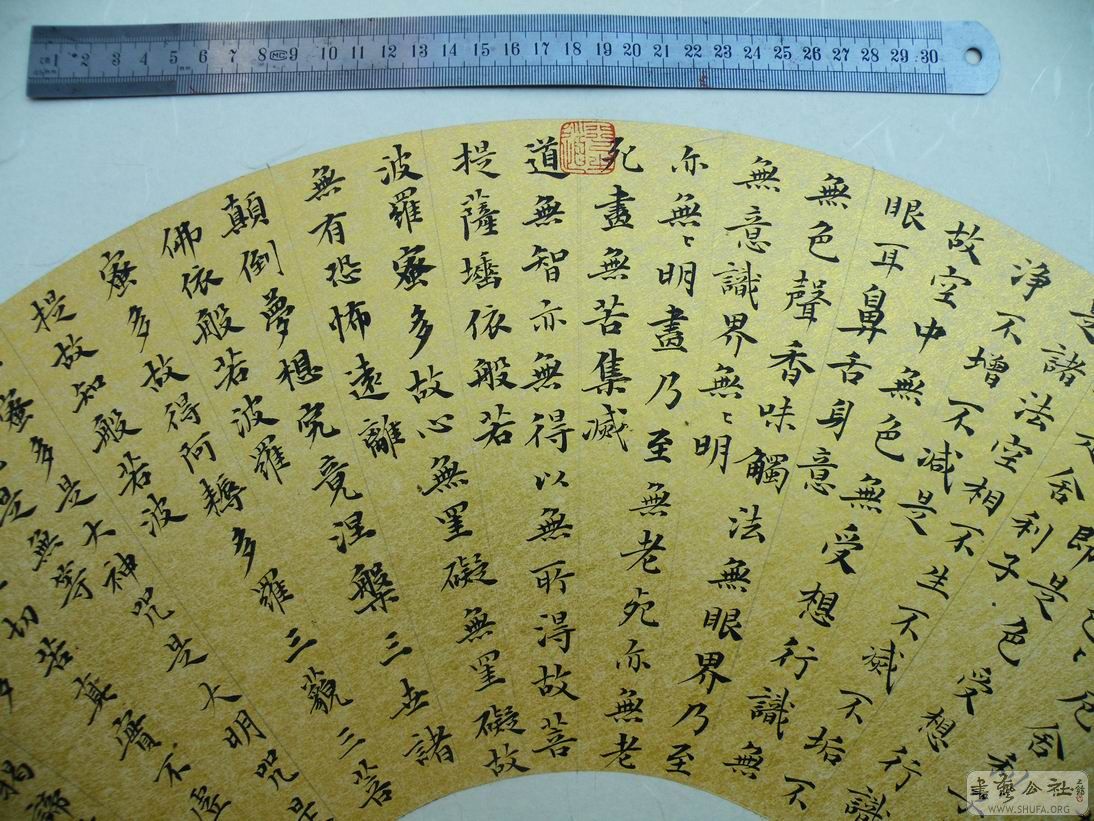 舍
即是色受想行識
舍利子
是諸法空相不生不滅不垢不
净不增不減是
故空中無色無受想行識無
眼耳鼻舌身意
無色聲香味觸法無眼界乃至
無意識界無〻明
亦無〻明盡乃至無老死亦無老
死盡無苦集滅
道無智亦無得以無所得故菩
提薩埵依般若
波羅蜜多故心無罣礙無罣礙故
無有恐怖遠離
顛倒夢想究竟涅槃三世諸
佛依般若波羅
蜜多故得阿耨多羅三藐三菩
提故知般若波
蜜多是大神咒是大明咒是
是無等
切苦真實不虛
多
揭諦
1 2 3 4 5 6 7 8 MC 9 10 11 12 13 14 15 16 17 18 19 20 21 22 23 24 25 26 27 28 29 30
書藝公社
WWW.SHUFA.ORG